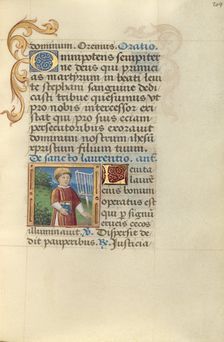 204
dominum. Oremus. Oratio.
Omnipotens sempiter
ne deus qui primici
as martyrum in beati leui
te stephani sanguine dedi
casti tribue quesumus vt
pro nobis intercessor exi
stat qui pro suis eciam
persecutoribus exorauit
dominum nostrum ihesum
xpristum filium tuum
de sancto laurentio. ant.
Leuita
lauren
cius bonum
operatus est
qui per signū
crucis cecos
illuminauit V. Dispersit de
dit pauperibus. R. Justicia